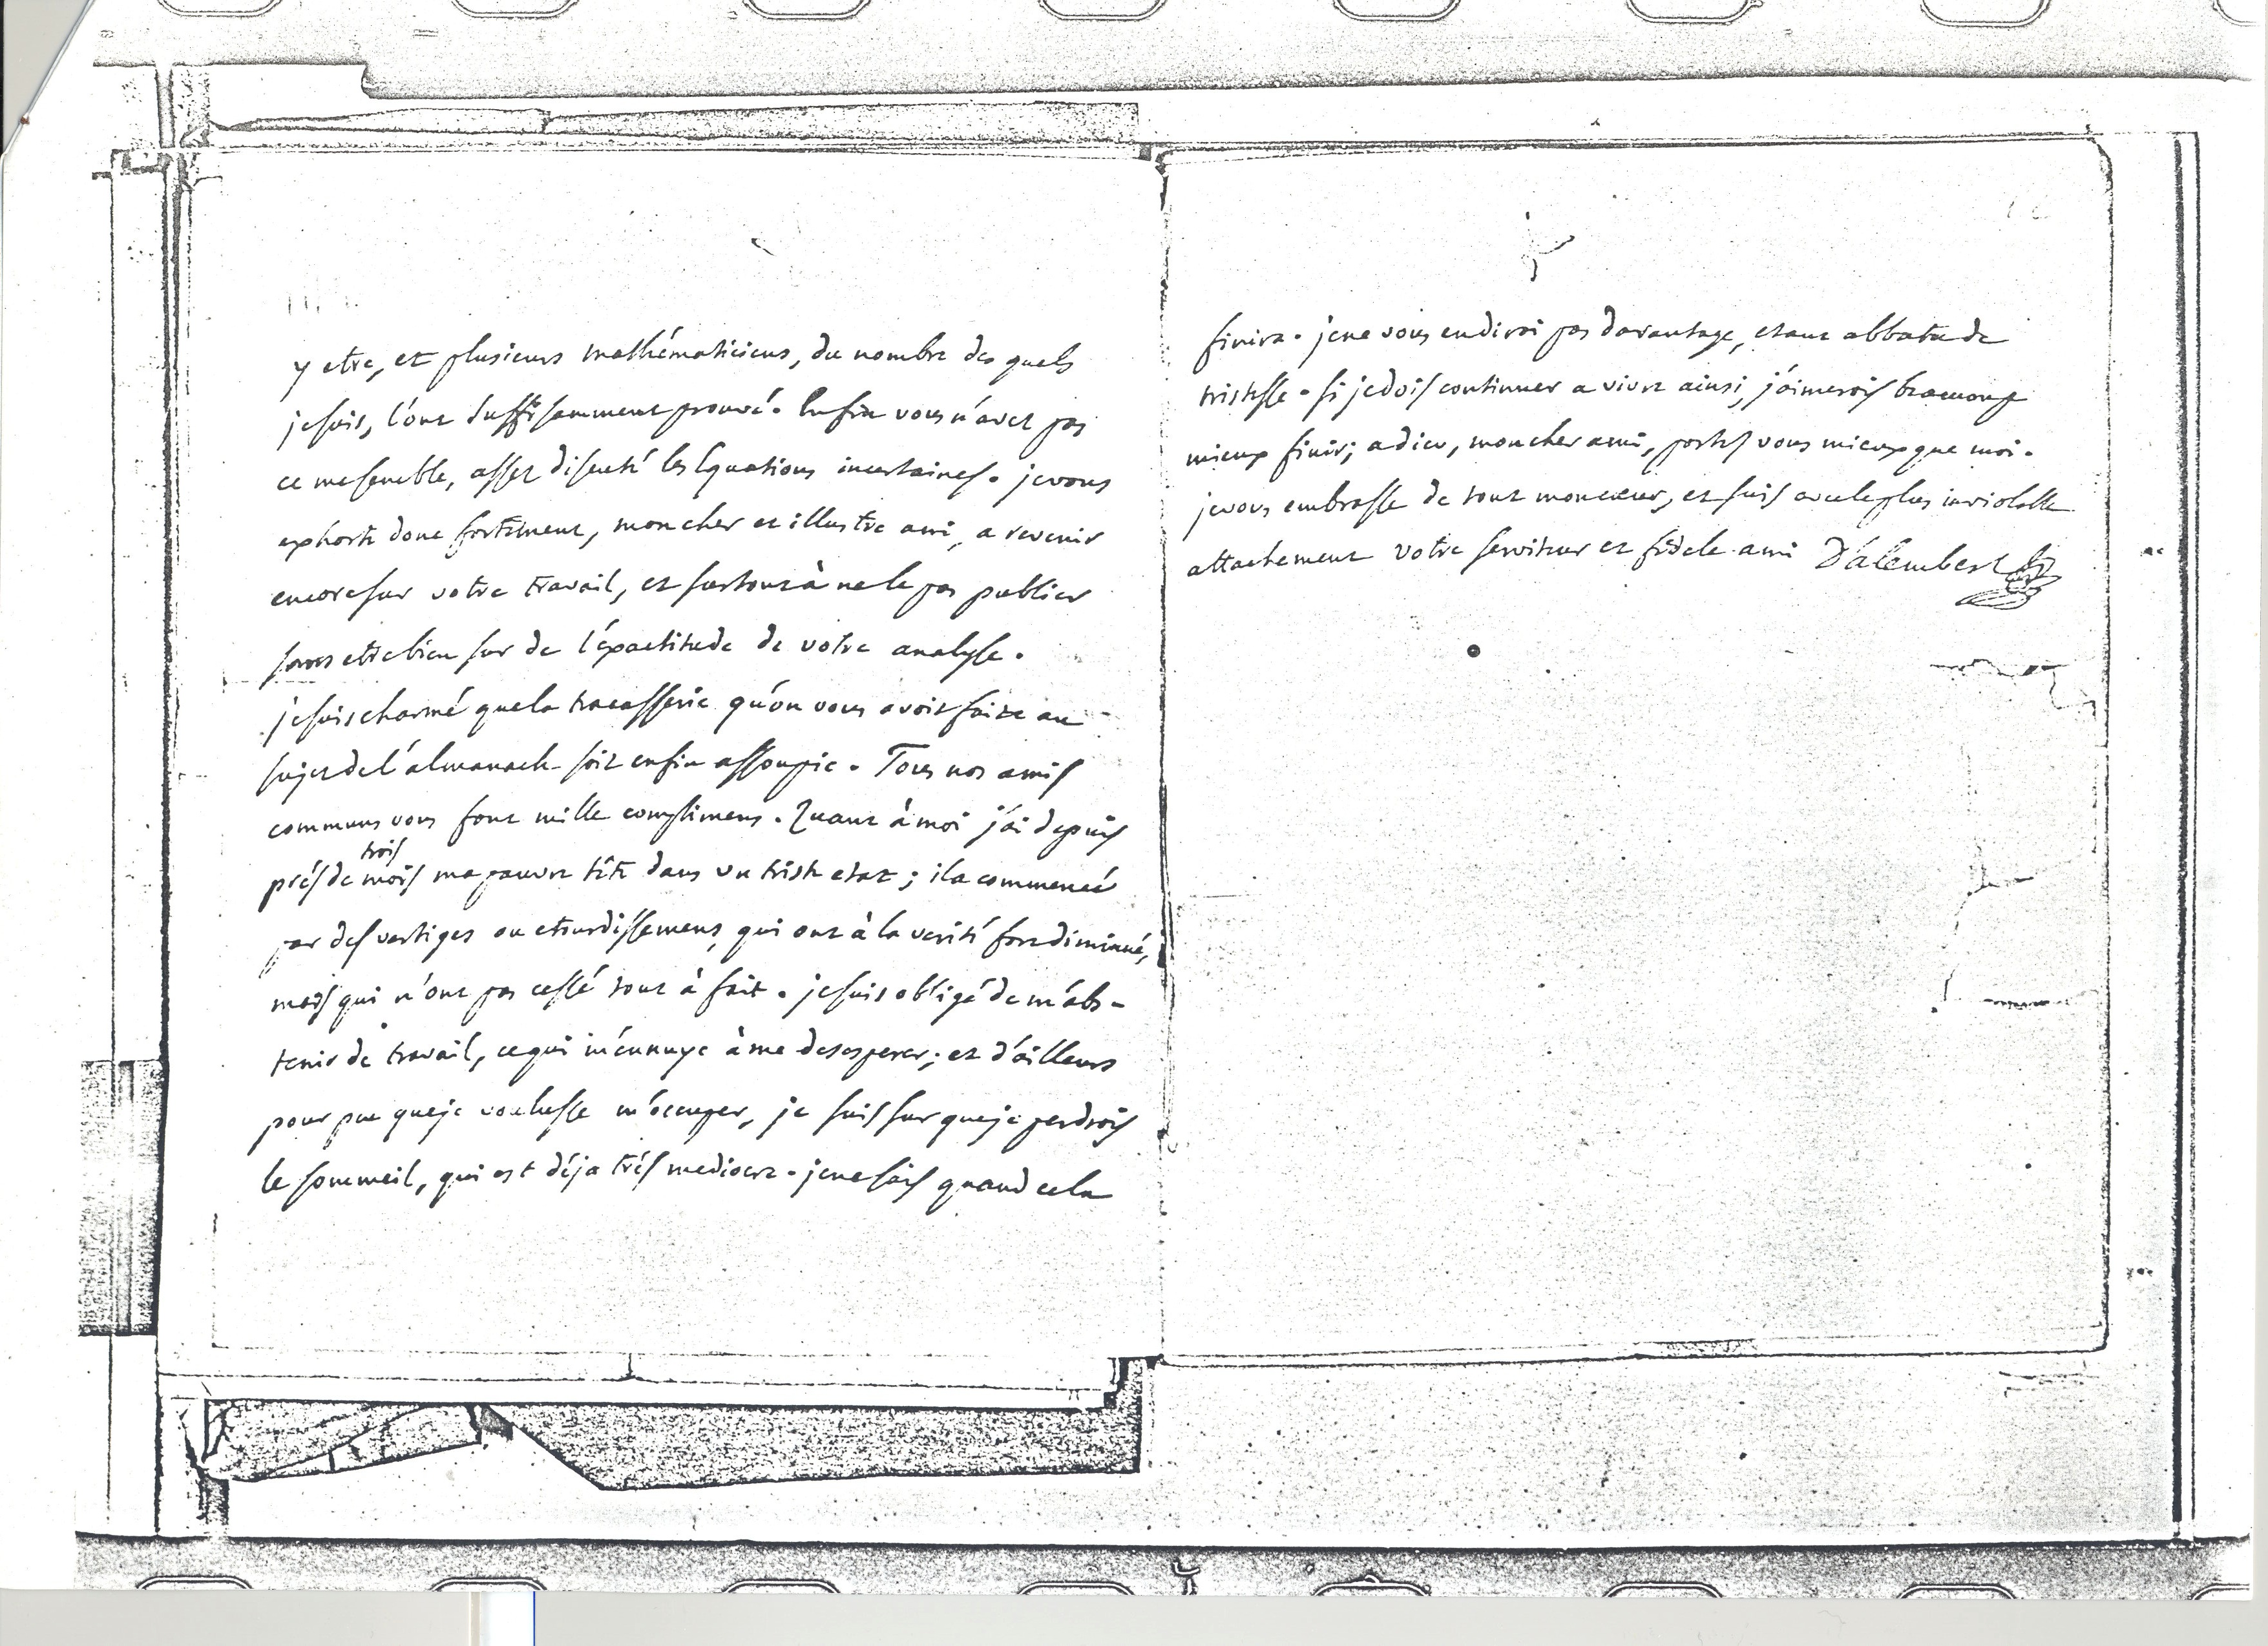 y etre, et plusieurs mathématiciens, du nombre des quels
je suis, l'ont suffisamment prouvé. Enfin vous n'avez pas
ce me semble, assez discuté les Equations incertaines. je vous
exhorte donc fortement, mon cher et illustre ami, a revenir
encore sur votre travail, et surtout à ne le pas publier
sans etre bien sur de l'éxactitude de votre analyse.
je suis charmé que la tracasserie qu'on vous avoit faite au
sujet de l'almanach soit enfin assoupie. Tous nos amis
communs vous font mille complimens. Quant à moi j'ai depuis
trois
prés de mois ma pauvre tête dans un triste etat; il a commencé
par des vertiges ou etourdissemens, qui ont à la verité fort diminué,
mais qui n'ont pas cessé tout à fait. je suis obligé de m'abs-
tenir de travail, ce qui m'ennuye à me desesperer; et d'ailleurs
pour peu que je voulusse m'occuper, je suis sur que je perdrois
le sommeil, qui est déja trés mediocre. je ne sais quand cela
finira. je ne vous en dirai pas davantage, etant abbatu de
tristesse. si je dois continuer a vivre ainsi, j'aimerois beaucoup
mieux finir; adieu, mon cher ami, portes vous mieux que moi.
je vous embrasse de tout mon cœur, et suis avec le plus inviolable
attachement votre serviteur et fidele ami D'alembert